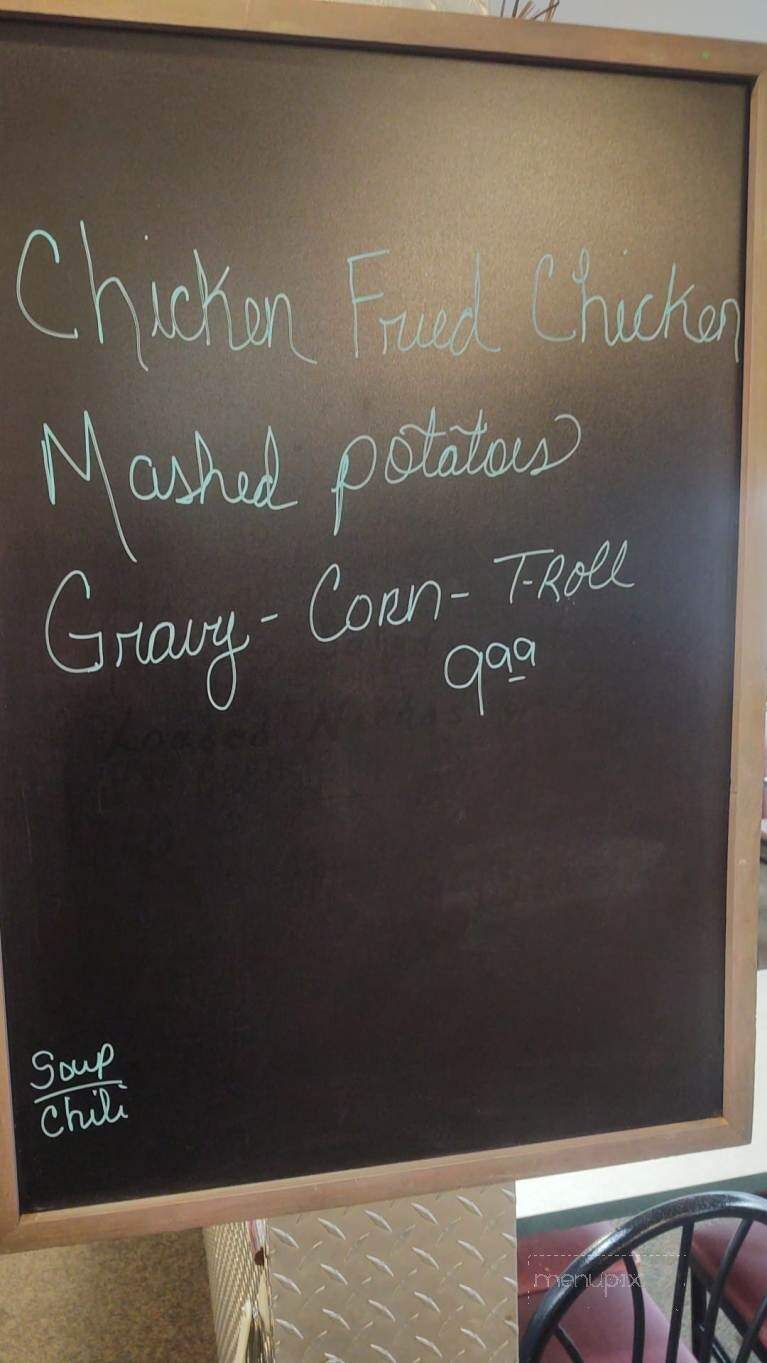 Chicken Fried Chicken
Mashed potatoes
Gravy - Corn - T-Roll
9 99
Soup
Chili
menupix